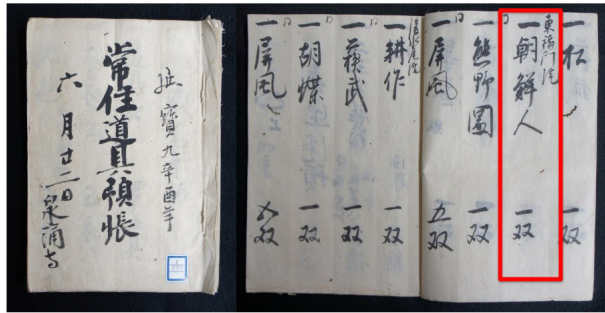 延寶九辛酉年
常住道具預帳
六月廿二日 泉涌寺
一松 一双
東福門院
一朝鮮人 一双
一熊野圖 一双
一屏風 五双
一耕作 一双
後水尾院
一蘓武 一双
一胡蝶 一双
一屏風 六双